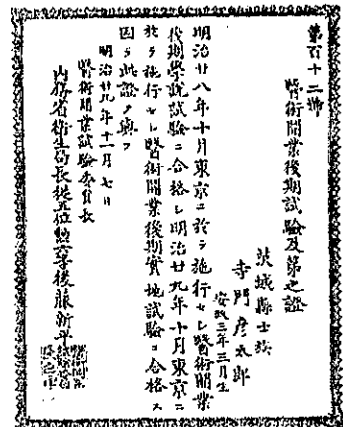 第百十二號
醫術開業後期試驗及第之證
茨城縣士族
寺門彦太郎
安政三年三月生
明治廿八年十月東京ニ於テ施行セシ醫術開業
後期學説試驗ニ合格シ明治廿九年十月東京ニ
於テ施行セシ醫術開業後期實地試驗ニ合格ス
因テ此證ヲ與フ
明治廿九年十一月七日
醫術開業試驗委員長
内務省衛生局長從五位勲六等後藤新平